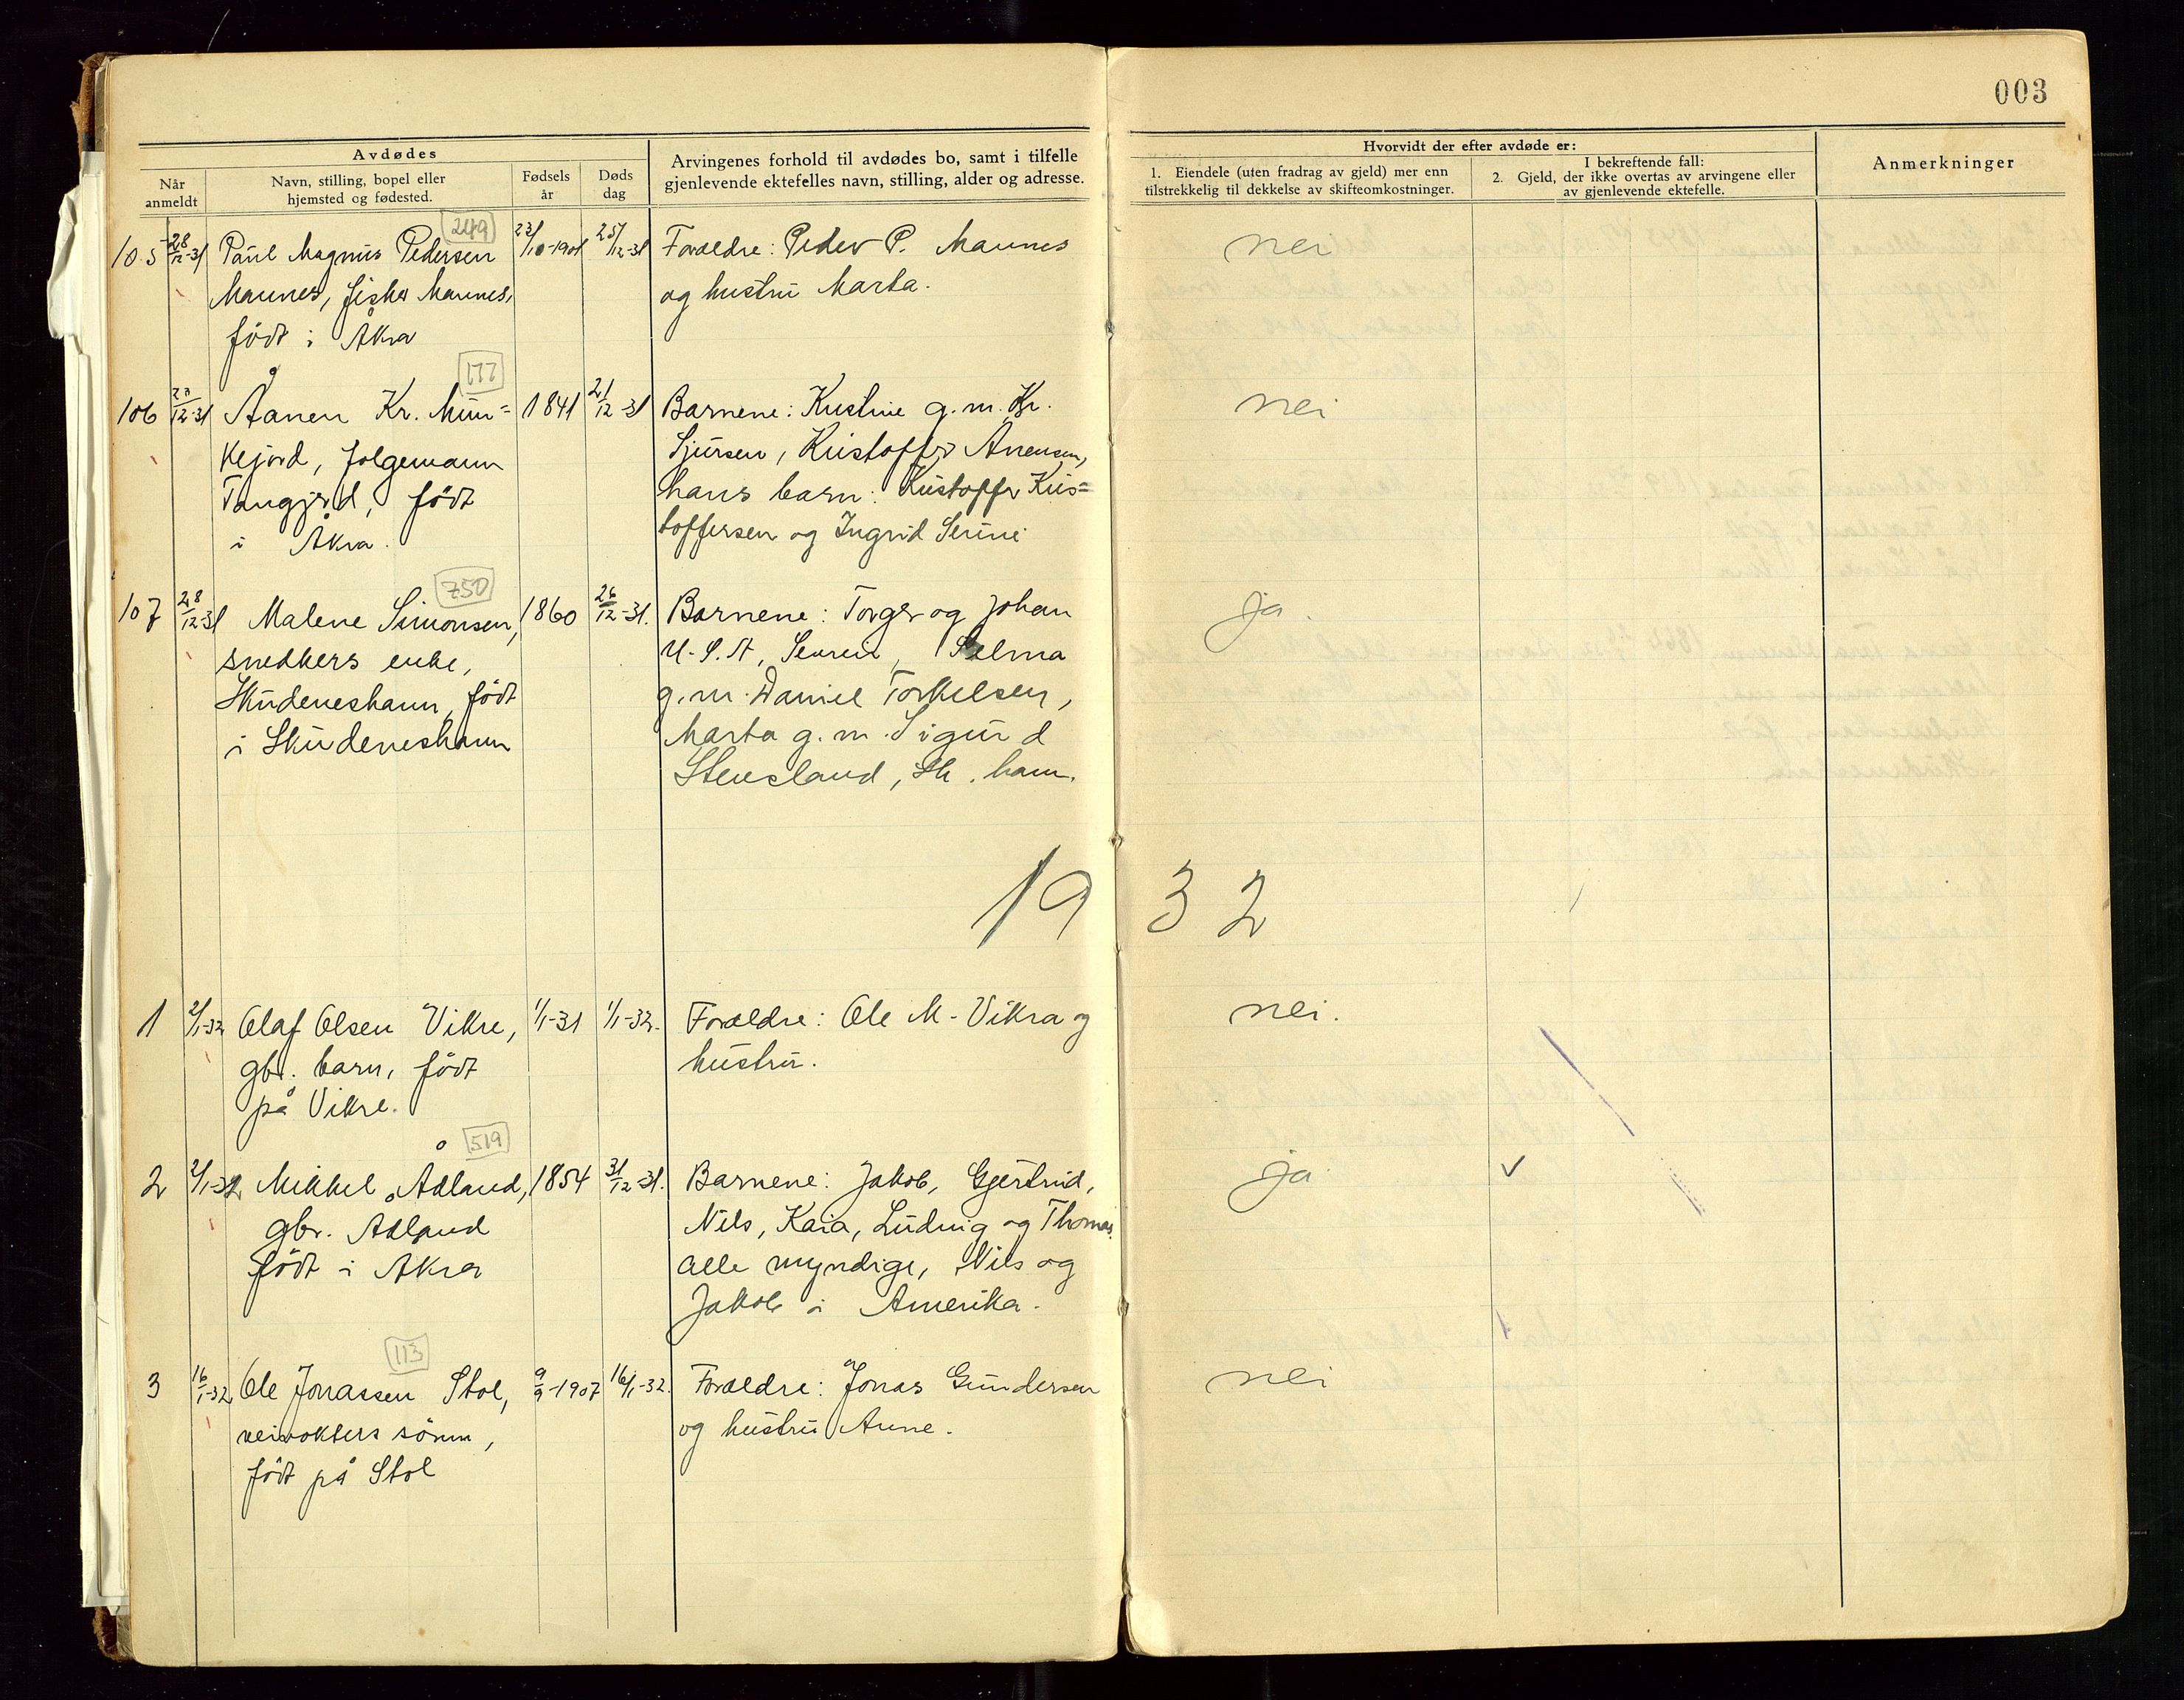 003
Avdødes
Når
anmeldt
Navn, stilling, bopel eller
hjemsted og fødested.
Fødsels
år
Døds
dag
Arvingenes forhold til avdødes bo, samt i tilfelle
gjenlevende ektefelles navn, stilling, alder og adresse.
Hvorvidt der efter avdøde er:
1. Eiendele (uten fradrag av gjeld) mer enn
tilstrekkelig til dekkelse av skifteomkostninger.
I bekreftende fall:
2. Gjeld, der ikke overtas av arvingene eller
av gjenlevende ektefelle.
Anmerkninger
249
105 28/12-31 Paul Magnus Pedersen 23/10-1901 25/12-31 Forældre: Peder P. Mannes nei
Mannes, fisker Mannes, og hustru Marta.
født i Åkra
177
106 /12-31 Åanen Kr. Mun= 1841 21/12-31 Barnene: Kristine g.m. Kr. nei
kejord, folgemann Sjursen, Kristoffer Ånensen,
Tangjerd, født hans barn: Kristoffer Kris=
i Åkra. toffersen og Ingrid Serine
750
107 28/12-31 Malene Simonsen, 1860 26/12-31. Barnene: Torger og Johan ja
snedkers enke, U.S.A, Selma
Skudeneshavn, født g.m. Daniel Torkelsen,
i Skudeneshavn Marta g.m. Sigurd
Stensland, Sk.havn.
1932
1 2/1-32 Olaf Olsen Vikre, 1/1-31 1/1-32. Forældre: Ole M. Vikra og nei.
gbr. barn, født hustru.
på Vikre.
519
2 2/1-32 Mikkel Ådland, 1854 31/12-31. Barnene: Jakob, Gjertrud, ja ✓
gbr. Ådland Nils, Kaia, Ludvig og Thomas,
født i Åkra alle myndige, Nils og
Jakob i Amerika.
113
3 16/1-32 Ole Jonassen Stol, 9/9-1907 16/1-32. Forældre: Jonas Gundersen nei
veivokters sønn, og hustru Anne.
født på Stol